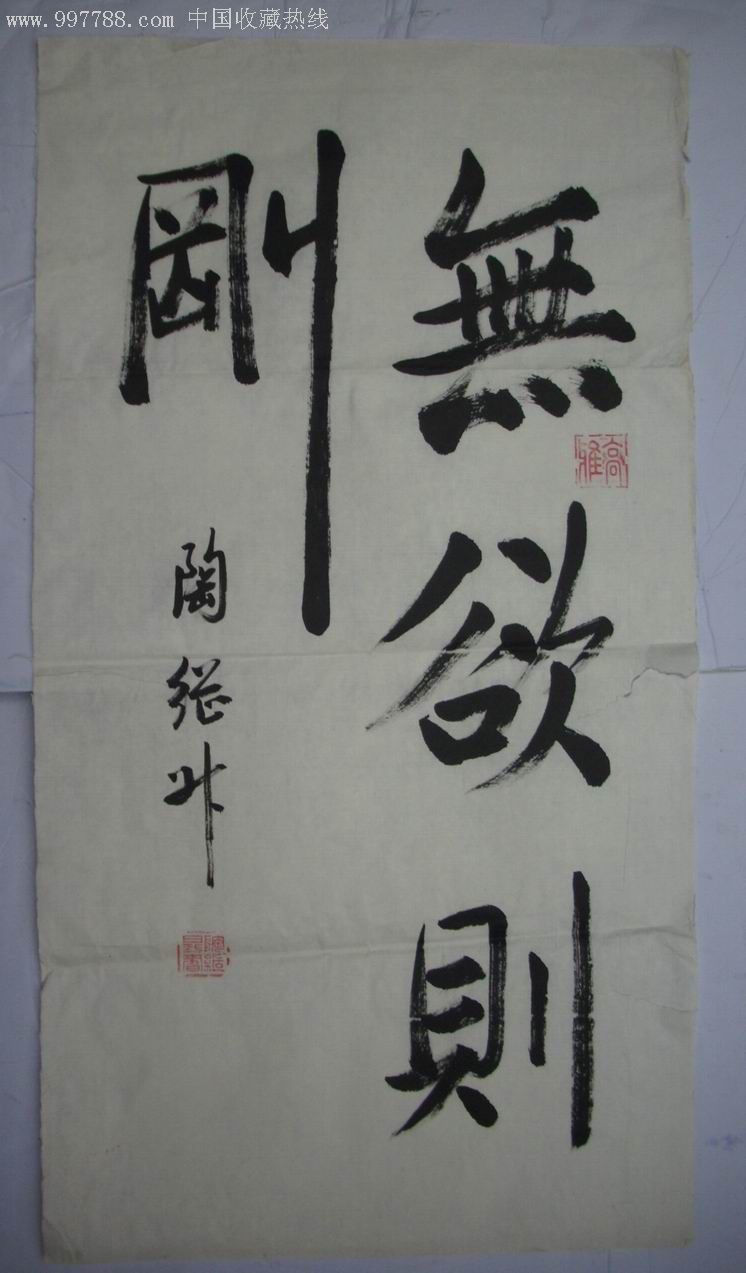 www.997788.com 中国收藏热线
無欲則
剛
高雅
陶